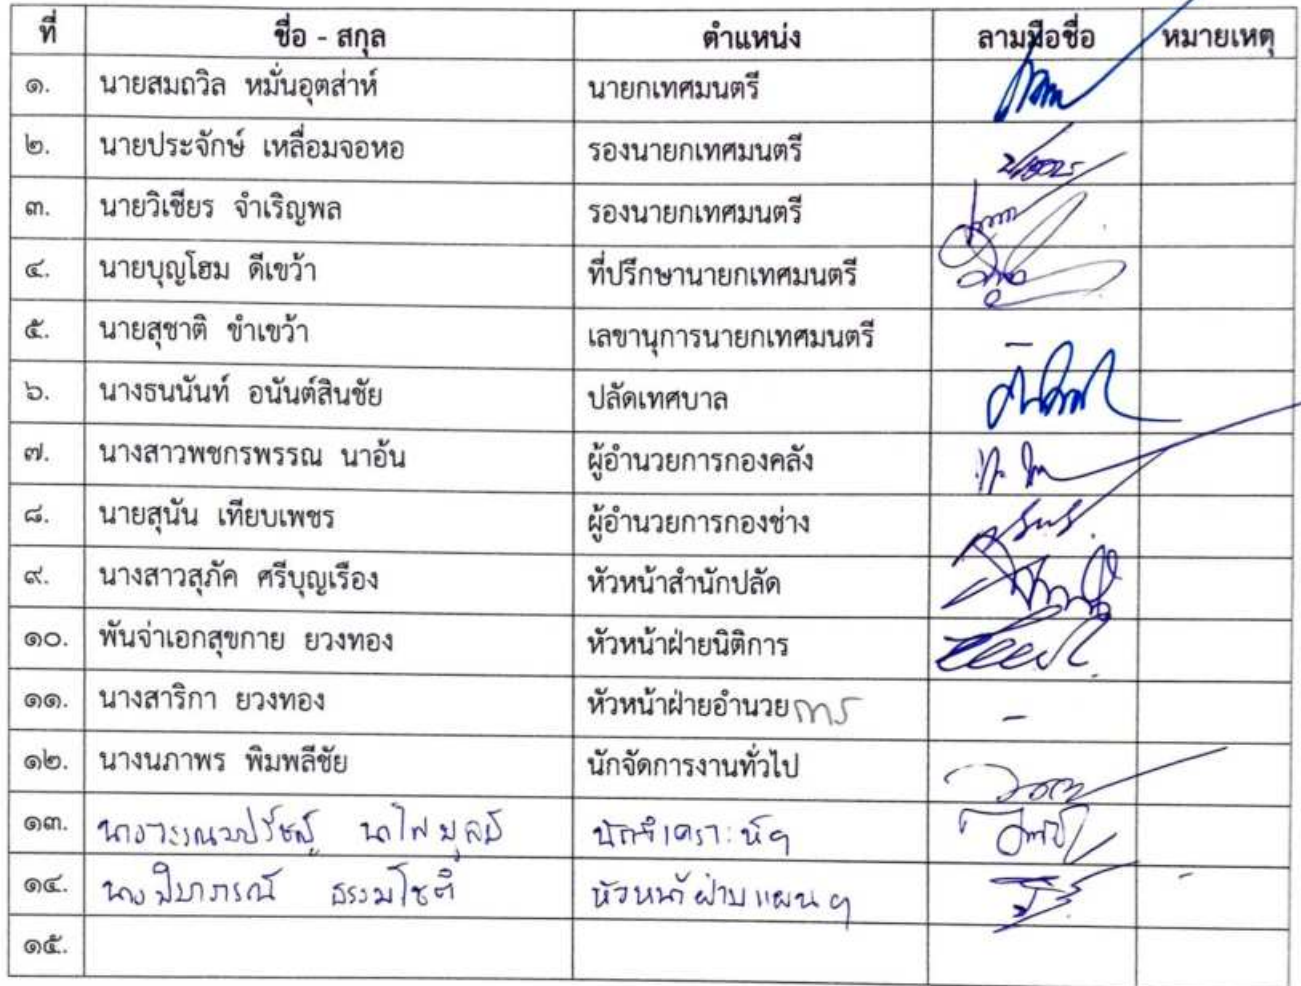 ที่ ชื่อ - สกุล ตำแหน่ง ลายมือชื่อ หมายเหตุ
๑. นายสมถวิล หมั่นอุตส่าห์ นายกเทศมนตรี
๒. นายประจักษ์ เหลื่อมจอหอ รองนายกเทศมนตรี
๓. นายวิเชียร จำเริญพล รองนายกเทศมนตรี
๔. นายบุญโฮม ดีเขว้า ที่ปรึกษานายกเทศมนตรี
๕. นายสุชาติ ขำเขว้า เลขานุการนายกเทศมนตรี -
๖. นางธนนันท์ อนันต์สินชัย ปลัดเทศบาล
๗. นางสาวพชกรพรรณ นาอ้น ผู้อำนวยการกองคลัง
๘. นายสุนัน เทียบเพชร ผู้อำนวยการกองช่าง
๙. นางสาวสุภัค ศรีบุญเรือง หัวหน้าสำนักปลัด
๑๐. พันจ่าเอกสุขกาย ยวงทอง หัวหน้าฝ่ายนิติการ
๑๑. นางสาริกา ยวงทอง หัวหน้าฝ่ายอำนวยการ -
๑๒. นางนภาพร พิมพลีชัย นักจัดการงานทั่วไป
๑๓. นักวิเคราะห์ฯ
๑๔. ธรรมโชติ หัวหน้าฝ่ายแผนฯ -
๑๕.